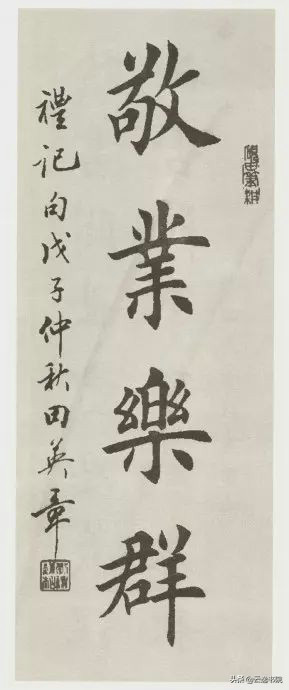 敬業樂群
禮記句戊子仲秋田英章
头条@云逸书院